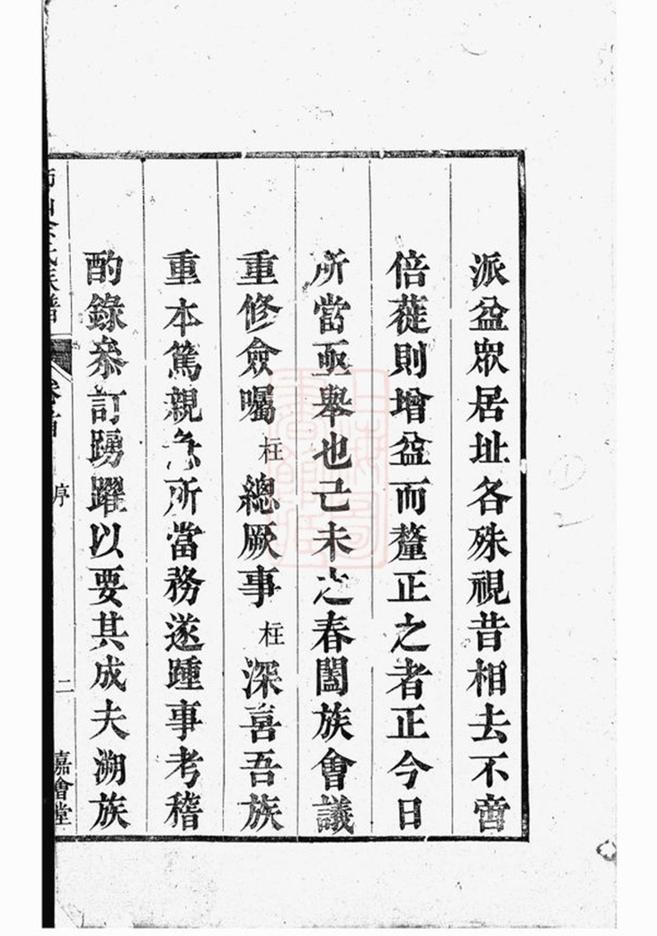 派益眾居址各殊視昔相去不啻
倍蓰則增益而釐正之者正今日
所當亟舉也己未之春闔族會議
重修僉囑枉總厥事枉深喜吾族
重本篤親急所當務遂踵事考稽
酌錄叅訂踴躍以要其成夫溯族
山 氏族譜 卷首 序 二 嘉會堂
上海圖書館藏